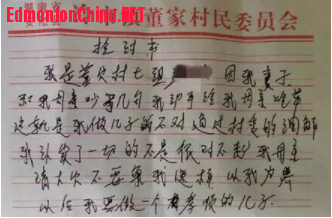 EdmontonChina.NET
镇董家村民委员会
检讨书
我是董家村七组 因我妻子
和我母亲吵了几句 我动手给我母亲
这就是我做儿子的不对 通过村委的调解
我认识了一切的不是 很对不起我母亲
请大家不要象我这样 以我为界
以后我要做一个有孝顺的儿子